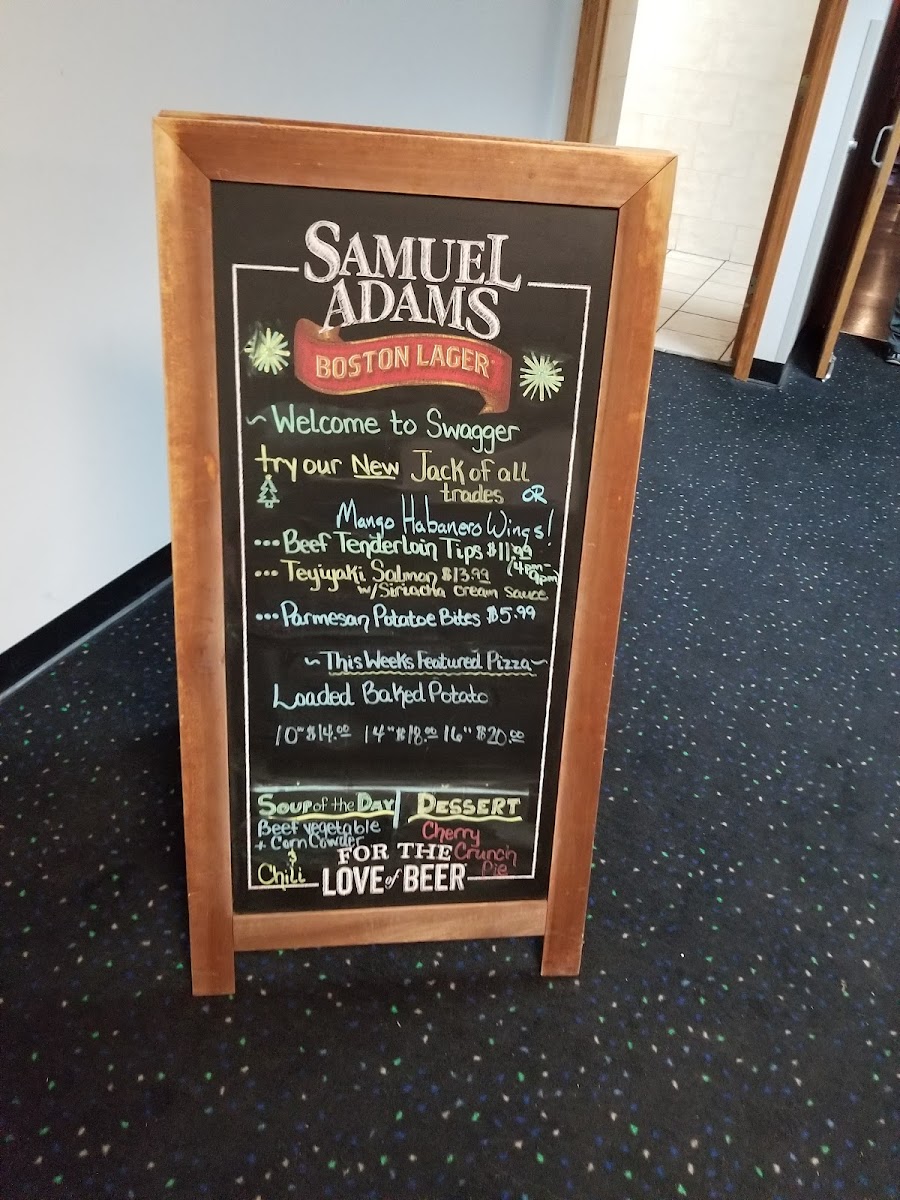 SAMUEL
ADAMS
BOSTON LAGER
~ Welcome to Swagger
try our New Jack of all
trades OR
Mango Habanero Wings!
... Beef Tenderloin Tips $11.99
(4pm-
9pm)
... Teyiyaki Salmon $13.99
w/Sirracha cream sauce
... Parmesan Potatoe Bites $5.99
~ This Weeks Featured Pizza ~
Loaded Baked Potato
10" $14.00 14" $18.00 16" $20.00
SOUP of the DAY
Beef vegetable
+ Corn Cowder
&
Chili
DESSERT
Cherry
Crunch
Pie
FOR THE
LOVE of BEER